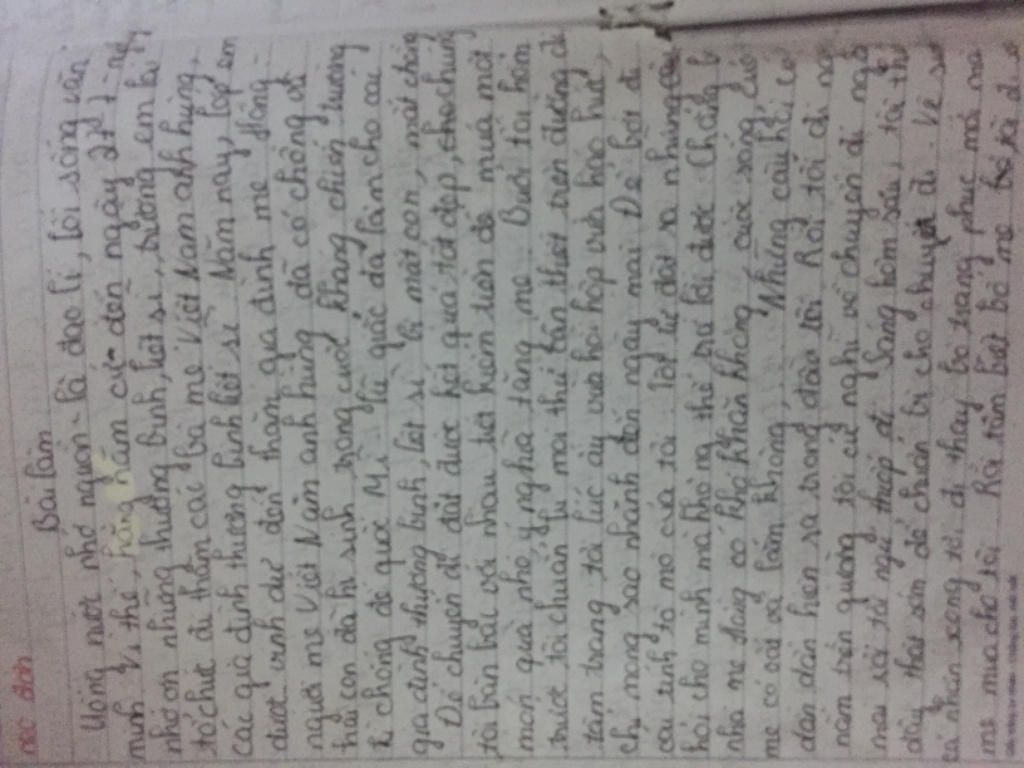 Bài làm
Uống nước nhớ nguồn - là đạo lí, lối sống của
mình. Vì thế, hằng năm cứ đến ngày 27-7
nhớ ơn những thương binh, liệt sĩ, trường em lại
tổ chức đi thăm các bà mẹ Việt Nam anh hùng,
các gia đình thương binh liệt sĩ. Năm nay, lớp em
được vinh dự đến thăm gia đình mẹ
người mẹ Việt Nam anh hùng đã có chồng và
hai con đã hi sinh trong cuộc kháng chiến trường
kì chống đế quốc Mĩ. tổ quốc đã làm cho các
gia đình thương binh, liệt sĩ bị mất con, mất chồng
Để chuyến đi đạt được kết quả tốt đẹp, cho chúng
tôi bàn bạc với nhau tiết kiệm tiền để mua một
món quà nhỏ ý nghĩa tặng mẹ. Buổi tối hôm
trước tôi chuẩn bị mọi thứ cần thiết trên đường đi
tâm trạng tôi lúc ấy vừa hồi hộp vừa háo hức,
chỉ mong sao nhanh đến ngày mai. Để bớt đi
cái tính tò mò của tôi. Tôi tự đặt ra những câu
hỏi cho mình mà không thể trả lời được. Chẳng
nhà mẹ đang có khó khăn không, cuộc sống của
mẹ có vất vả lắm không, ... Những câu hỏi cứ
dần dần hiện ra trong đầu tôi. Rồi tôi đi
nằm trên giường tôi cứ nghĩ về chuyến đi
mai rồi tôi ngủ thiếp đi. Sáng hôm sau, tôi
dậy thật sớm để chuẩn bị cho chuyến đi. Vệ sinh
cá nhân xong tôi đi thay bộ trang phục mà
mẹ mua cho tôi. Rồi tạm biệt bố mẹ tôi đi